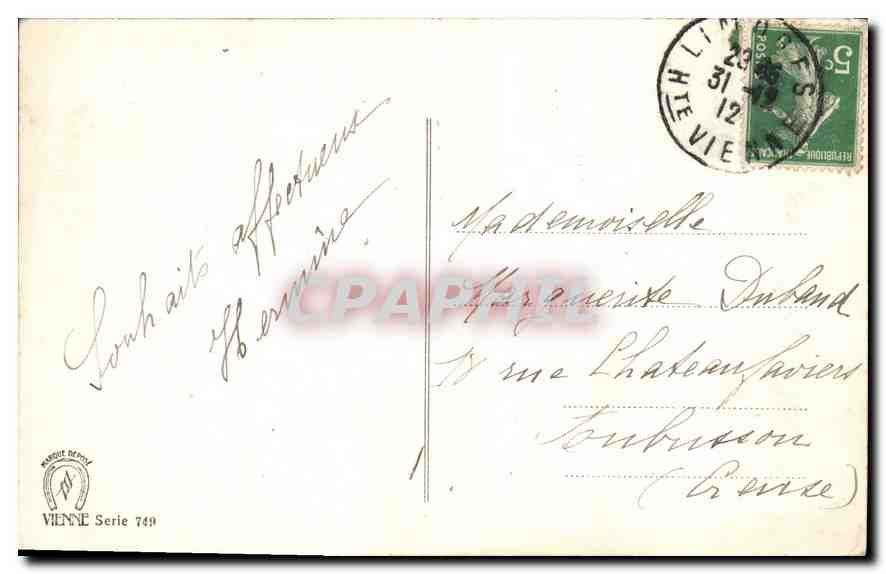 LIMOGES
23 35
31 -12
12
HTE VIENNE
5 c
POSTES
REPUBLIQUE FRANCAISE
Souhaits affectueux
Hermine
Mademoiselle
Marguerite Duband
18 rue Chateaufaviers
Aubusson
(Creuse)
CPAPHIL
MARQUE DEPOSÉ
VIENNE Serie 749